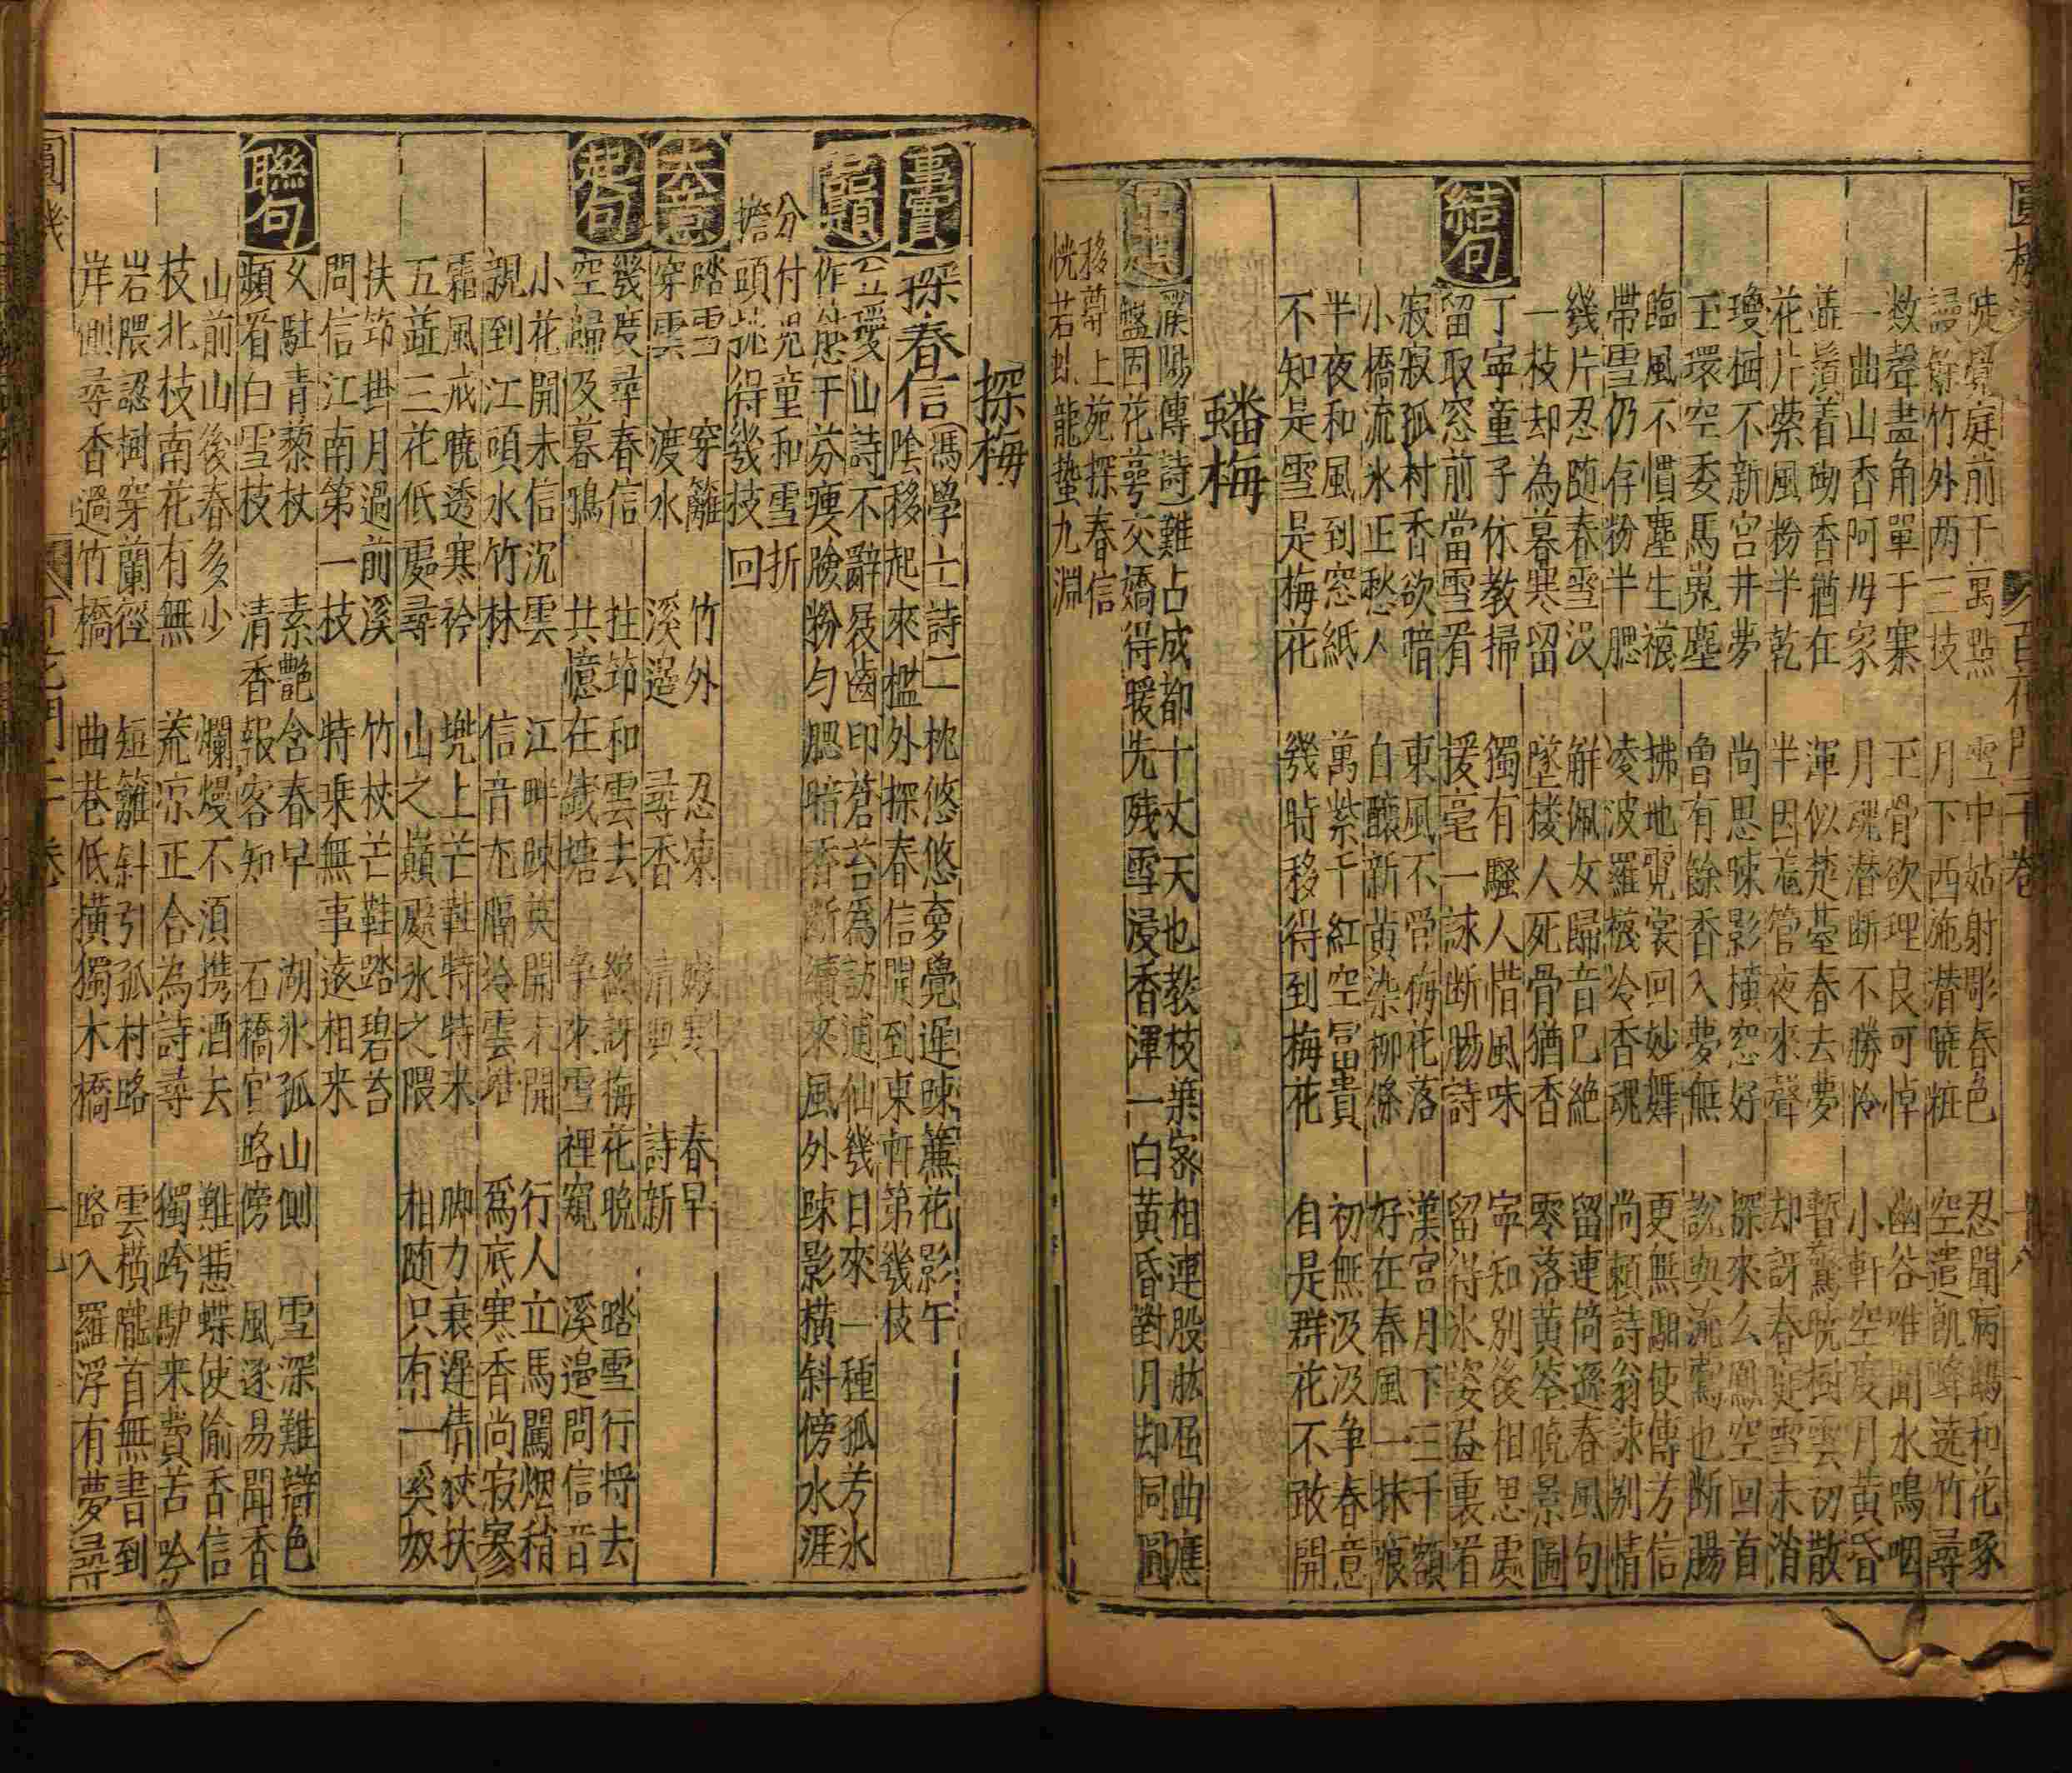 百花門二十卷 十八
陡覺庭前千萬點 雪中姑射彫春色 忍聞病鶴和花啄
謾餘竹外两三枝 月下西施潜曉粧 空遣飢蜂遶竹尋
数聲畫角單于寨 玉骨欲理良可悼 幽谷唯聞水鳴咽
一曲山香阿母家 月魂潜断不勝怜 小軒空度月黄昏
鬚着砌香猶在 渾似楚臺春去夢 暫驚曉樹雲初散
花片縈風粉半乾 半因羗管夜來聲 却訝春庭雪未消
瓊樹不新宫井夢 尚思踈影横怨好 探來么鳳空回首
玉環空委馬嵬塵 魯有餘香入夢無 說與流鶯也断腸
臨風不慣塵生襪 拂地霓裳回妙舞 更無翩使傳方信
帶雪仍存粉半腮 凌波羅襪冷香魂 尚頼詩翁詠别情
幾片忍随春雪没 解佩女歸音已絶 留連筒遜春風句
一枝却為暮寒留 墜楼人死骨猶香 零落黄筌晚景圖
結句
丁寧童子休教掃 獨有騷人惜風味 寧知别後相思處
留取窓前當雪看 援毫一詠断腸詩 留得氷姿益裏看
寂寂孤村香欲暗 東風不管梅花落 漢宫月下三千額
小橋流水正愁人 自釀新黄染柳條 好在春風一抹痕
半夜和風到窓紙 萬紫千紅空冨貴 初無汲汲争春意
不知是雪是梅花 幾時移得到梅花 自是群花不敢開
蟠梅
品題
濮陽傳詩難占成都十丈天也教枝葉密相連股肱屈曲應
盤固花萼交嬌得暖先残雪浸香渾一白黄昏對月却同圓
移尊上苑探春信
恍若虬龍蟄九淵
探梅
事實
探春信
馮學士詩二枕悠悠夢覺遲踈簾花影午
陰移起來檻外探春信開到東軒第幾枝
品題
山詩不辭屐齒印蒼苔為訪逋仙幾日來一種孤芳氷
作態干芬瘦臉粉勻腮暗香断續來風外踈影横斜傍水涯
分付児童和雪折
擔頭挑得幾枝回
大意
踏雪 穿籬 竹外 忍凍 嫩寒 春早
穿雲 渡水 溪邉 尋香 清興 詩新
起句
幾度尋春信 拄筇和雲去 總訝梅花晩 踏雪行将去
空歸及暮鴉 共憶在錢塘 争來雪裡窺 溪邉問信音
小花開未信沉雲 江畔踈英開未開 行人立馬闖烟稍
親到江頭水竹林 信音尢隔冷雲堆 為底寒香尚寂寥
霜風戒曉透寒衿 兠上芒鞋特特来 脚力衰遲倩狹扶
五蕋三花低處尋 山之巔處氷之隈 相随只有一奚奴
扶筇掛月過前溪 竹杖芒鞋踏碧苔
問信江南第一枝 特乘無事遠相来
聯句
久駐青藜杖 素艶含春早 湖氷孤山側 雪深難辯色
頻看白雪枝 清香報客知 石橋官路傍 風逐易聞香
山前山後春多少 爛熳不須携酒去 難慿蝶使偷香信
枝北枝南花有無 荒凉正合為詩尋 獨跨馿来費苦吟
岩隈認樹穿蘭徑 短籬斜引孤村路 雲横隴首無書到
岸側尋香過竹橋 曲巷低横獨木橋 路入羅浮有夢尋
圓機